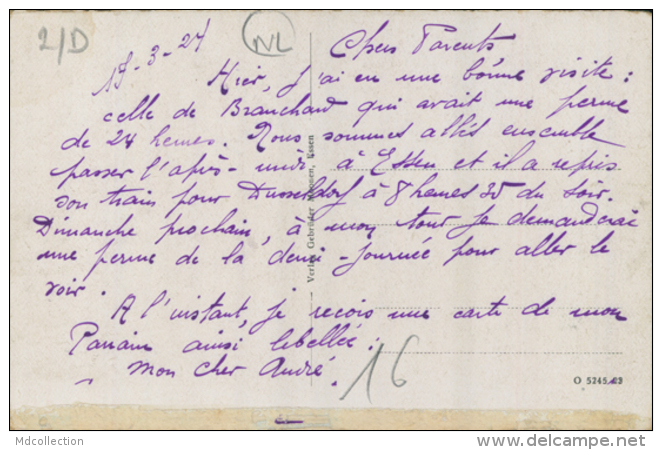 2/D
NL
Chers Parents
Hier, j'ai eu une bonne visite :
celle de Branchard qui avait une perme
de 24 heures. Nous sommes allés ensemble
passer l'après-midi à Essen et il a repris
son train pour Dusseldorf à 8 heures 35 du soir.
Dimanche prochain, à mon tour je demanderai
une perme de la demi-journée pour aller le
voir.
A l'instant, je reçois une carte de mon
Parrain ainsi libellée :
" Mon cher André.
16
Verlag Gebrüder Essen
O 5245
Mdcollection
www.delcampe.net